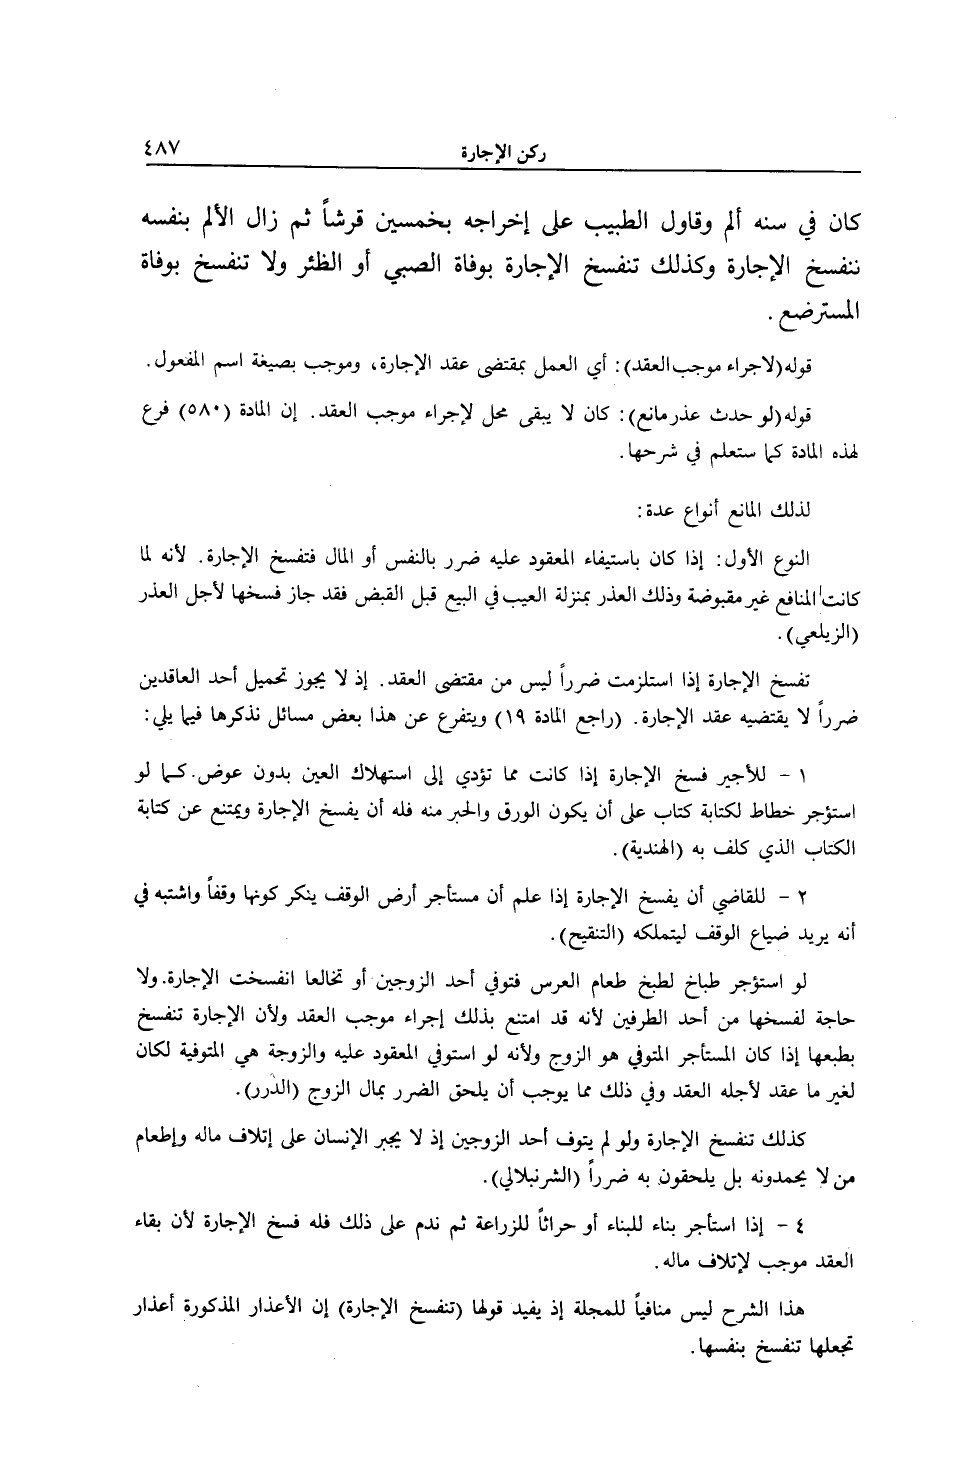 ركن الإجارة ٤٨٧
كان في سنه ألم وقاول الطبيب على إخراجه بخمسين قرشاً ثم زال الألم بنفسه
تنفسخ الإجارة وكذلك تنفسخ الإجارة بوفاة الصبي أو الظئر ولا تنفسخ بوفاة
المسترضع .
قوله (لاجراء موجب العقد) : أي العمل بمقتضى عقد الإجارة، وموجب بصيغة اسم المفعول .
قوله (لو حدث عذر مانع) : كان لا يبقى محل لإجراء موجب العقد . إن المادة (٥٨٠) فرع
لهذه المادة كما ستعلم في شرحها .
لذلك المانع أنواع عدة :
النوع الأول : إذا كان باستيفاء المعقود عليه ضرر بالنفس أو المال فتفسخ الإجارة . لأنه لما
كانت المنافع غير مقبوضة وذلك العذر بمنزلة العيب في البيع قبل القبض فقد جاز فسخها لأجل العذر
(الزيلعي) .
تفسخ الإجارة إذا استلزمت ضرراً ليس من مقتضى العقد . إذ لا يجوز تحميل أحد العاقدين
ضرراً لا يقتضيه عقد الإجارة . (راجع المادة ١٩) ويتفرع عن هذا بعض مسائل نذكرها فيما يلي :
١ - للأجير فسخ الإجارة إذا كانت مما تؤدي إلى استهلاك العين بدون عوض . كما لو
استؤجر خطاط لكتابة كتاب على أن يكون الورق والحبر منه فله أن يفسخ الإجارة ويمتنع عن كتابة
الكتاب الذي كلف به (الهندية) .
٢ - للقاضي أن يفسخ الإجارة إذا علم أن مستأجر أرض الوقف ينكر كونها وقفاً واشتبه في
أنه يريد ضياع الوقف ليتملكه (التنقيح) .
لو استؤجر طباخ لطبخ طعام العرس فتوفي أحد الزوجين أو تخالعا انفسخت الإجارة . ولا
حاجة لفسخها من أحد الطرفين لأنه قد امتنع بذلك إجراء موجب العقد ولأن الإجارة تنفسخ
بطبعها إذا كان المستأجر المتوفي هو الزوج ولأنه لو استوفي المعقود عليه والزوجة هي المتوفية لكان
لغير ما عقد لأجله العقد وفي ذلك مما يوجب أن يلحق الضرر بمال الزوج (الدرر) .
كذلك تنفسخ الإجارة ولو لم يتوف أحد الزوجين إذ لا يجبر الإنسان على إتلاف ماله وإطعام
من لا يحمدونه بل يلحقون به ضرراً (الشرنبلالي) .
٤ - إذا استأجر بناء للبناء أو حراثاً للزراعة ثم ندم على ذلك فله فسخ الإجارة لأن بقاء
العقد موجب لإتلاف ماله .
هذا الشرح ليس منافياً للمجلة إذ يفيد قولها (تنفسخ الإجارة) إن الأعذار المذكورة أعذار
تجعلها تنفسخ بنفسها .